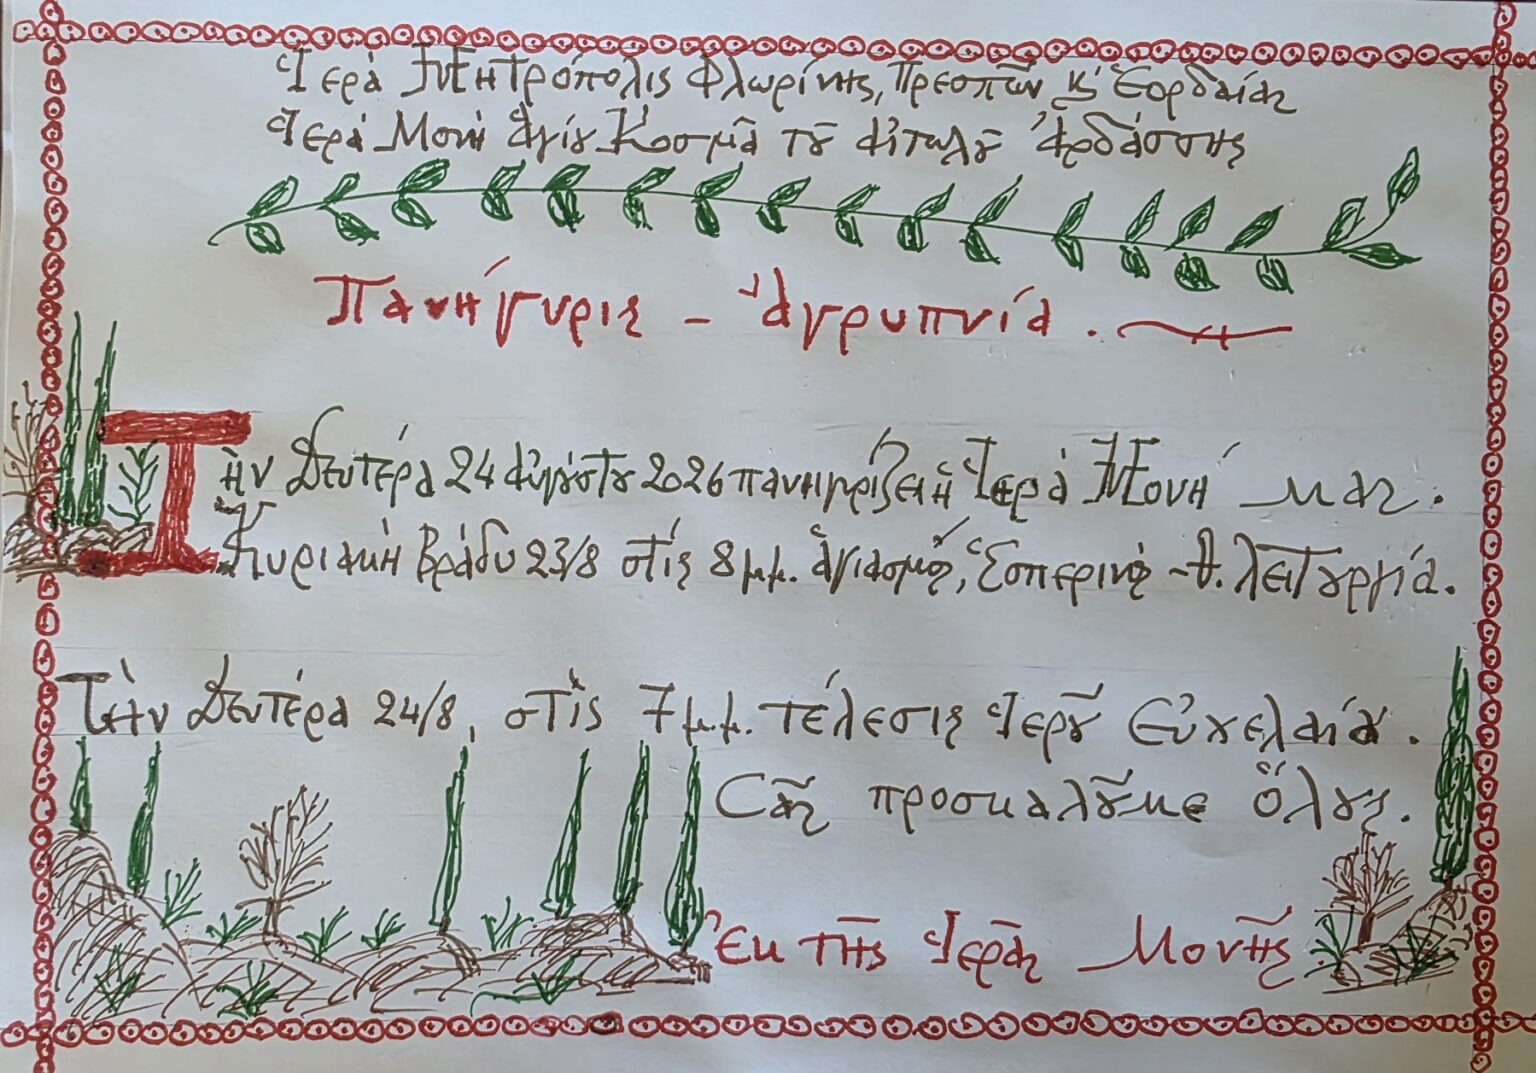 Ἱερὰ Μητρόπολις Φλωρίνης, Πρεσπῶν κ' Ἑορδαίας
Ἱερὰ Μονὴ Ἁγίȣ Κοσμᾶ τȣ͂ Αἰτωλȣ͂ Ἀρδάσσης
Πανήγυρις - Ἀγρυπνία.
Τὴν Δευτέρα 24 Αὐγȣ́στȣ 2026 πανηγυρίζει ἡ Ἱερὰ Μονή μας.
Κυριακὴ βράδυ 23/8 στίς 8 μ.μ. ἁγιασμός, Ἑσπερινός - θ. λειτȣργία.
Τὴν Δευτέρα 24/8, στὶς 7 μ.μ. τέλεσις Ἱερȣ͂ Εὐχελαίȣ.
Σᾶς προσκαλȣ͂με ὅλȣς.
Ἐκ τῆς Ἱερᾶς Μονῆς